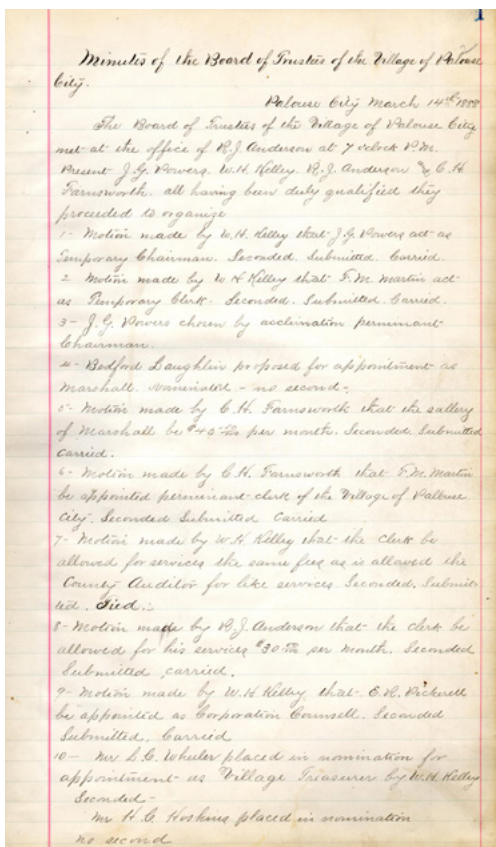 1
Minutes of the Board of Trustees of the Village of Palouse
City.
Palouse City March 14th 1888
The Board of Trustees of the Village of Palouse City
met at the office of R.J. Anderson at 7 oclock P.M.
Present J.G. Powers. W.H. Kelley. R.J. Anderson & C.H.
Farnsworth. all having been duly qualified they
proceeded to organize
1- Motion made by W.H. Kelley that J.G. Powers act as
Temporary Chairman. Seconded. Submitted. Carried.
2 Motion made by W H Kelley that F.M. Martin act
as Temporary Clerk. Seconded. Submitted. Carried.
3- J.G. Powers chosen by acclimation perminant
Chairman.
4- Bedford Laughlin proposed for appointment as
Marshall. nominated - no second -
5- Motion made by C.H. Farnsworth that the sallery
of Marshall be $45 00/100 per month. Seconded. Submitted
carried.
6- Motion made by C.H. Farnsworth that F.M. Martin
be appointed perminant clerk of the Village of Palouse
City. Seconded Submitted Carried
7- Motion made by W.H. Kelley that the Clerk be
allowed for services the same fees as is allowed the
County Auditor for like services. Seconded. Submit-
ted. Tied.
8- Motion made by R.J. Anderson that the clerk be
allowed for his services $30 00/100 per month. Seconded
Submitted, carried.
9- Motion made by W.H. Kelley that E.R. Pickerell
be appointed as Corporation Counsell. Seconded
Submitted. Carried
10- Mr L.C. Wheeler placed in nomination for
appointment as Village Treasurer by W.H. Kelley
Seconded -
Mr H.C. Hoskins placed in nomination
no second